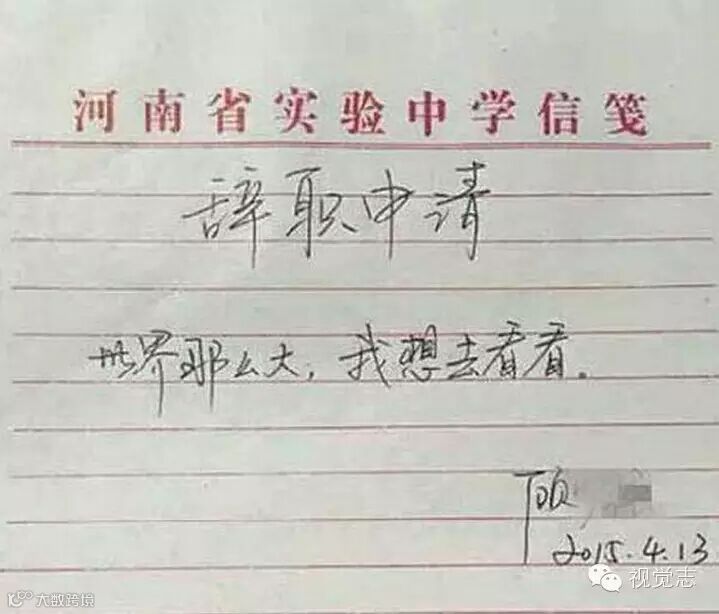 河南省实验中学信笺
辞职申请
世界那么大，我想去看看。
顾
2015.4.13
视觉志
大数跨境